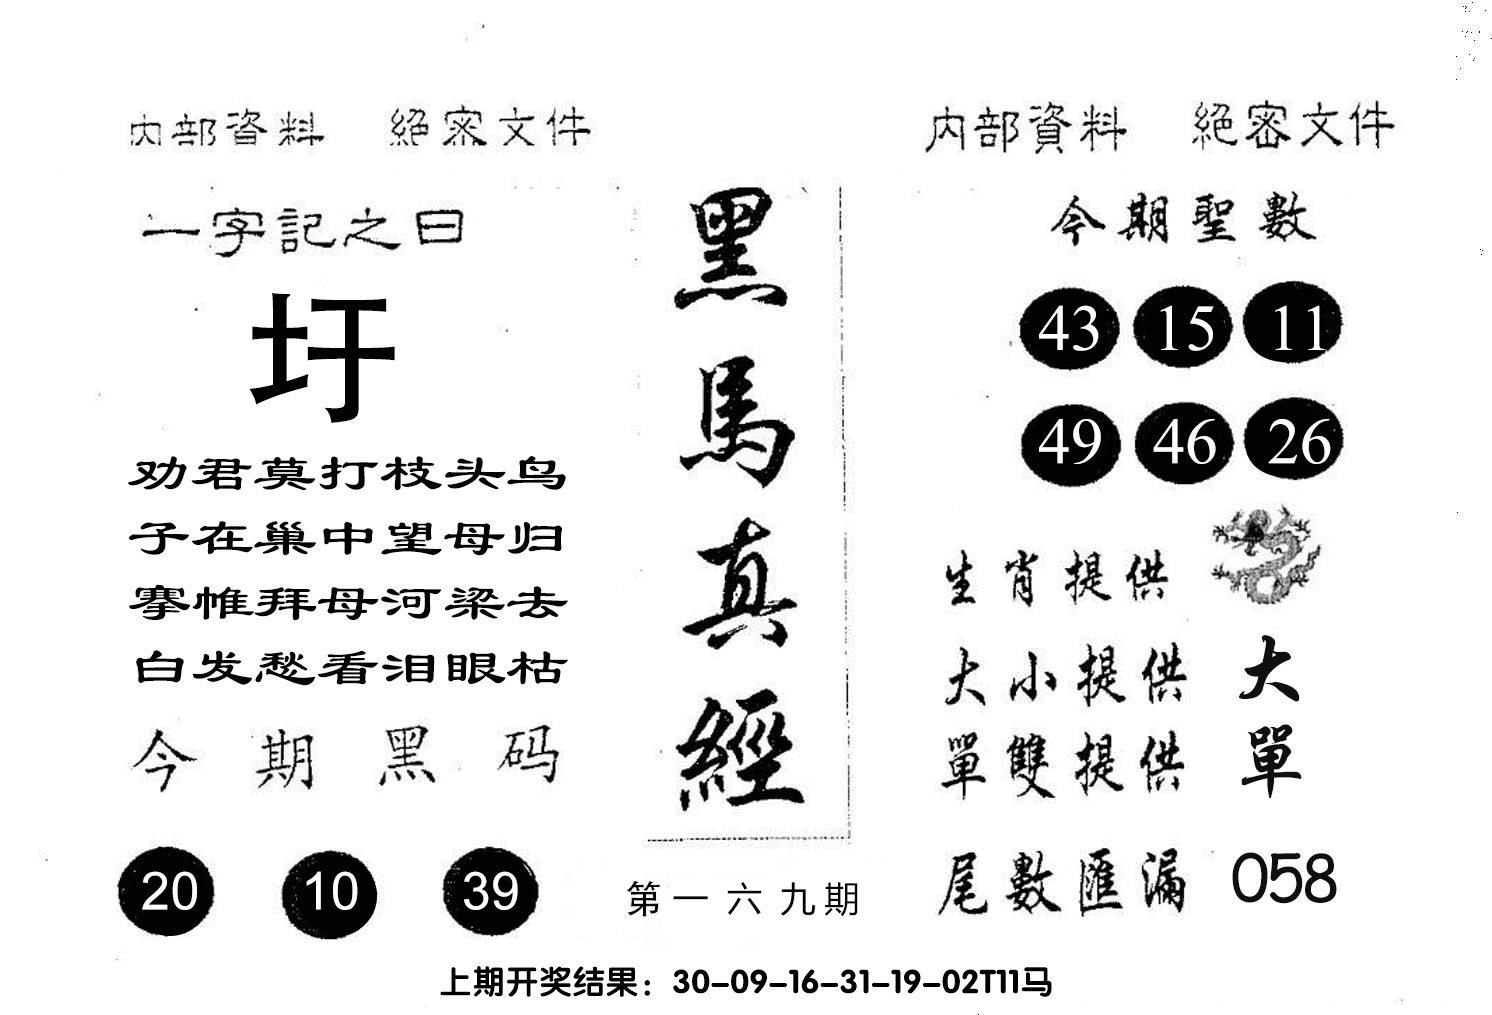 内部資料 絕密文件
一字記之曰
圩
劝君莫打枝头鸟
子在巢中望母归
搴帷拜母河梁去
白发愁看泪眼枯
今期黑码
20 10 39
黑馬真經
第一六九期
内部資料 絕密文件
今期聖數
43 15 11
49 46 26
生肖提供
大小提供 大
單雙提供 單
尾數匯漏 058
上期开奖结果：30-09-16-31-19-02T11马